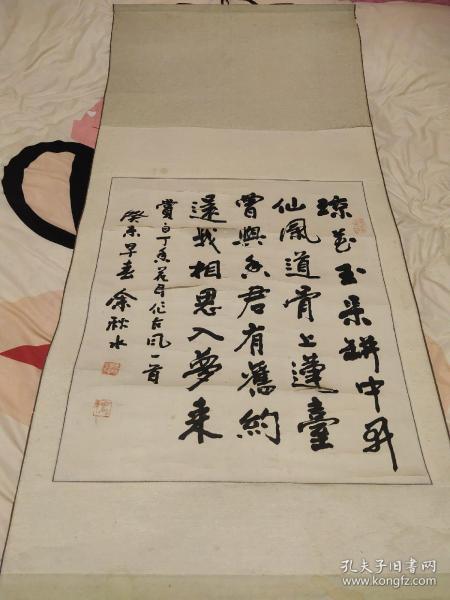 琼花玉朵缾中開
仙風道骨上蓬臺
曾與香君有舊約
還我相思入夢來
賞白丁香花作古风一首
癸未早春 余秋水
孔夫子旧书网
www.kongfz.com